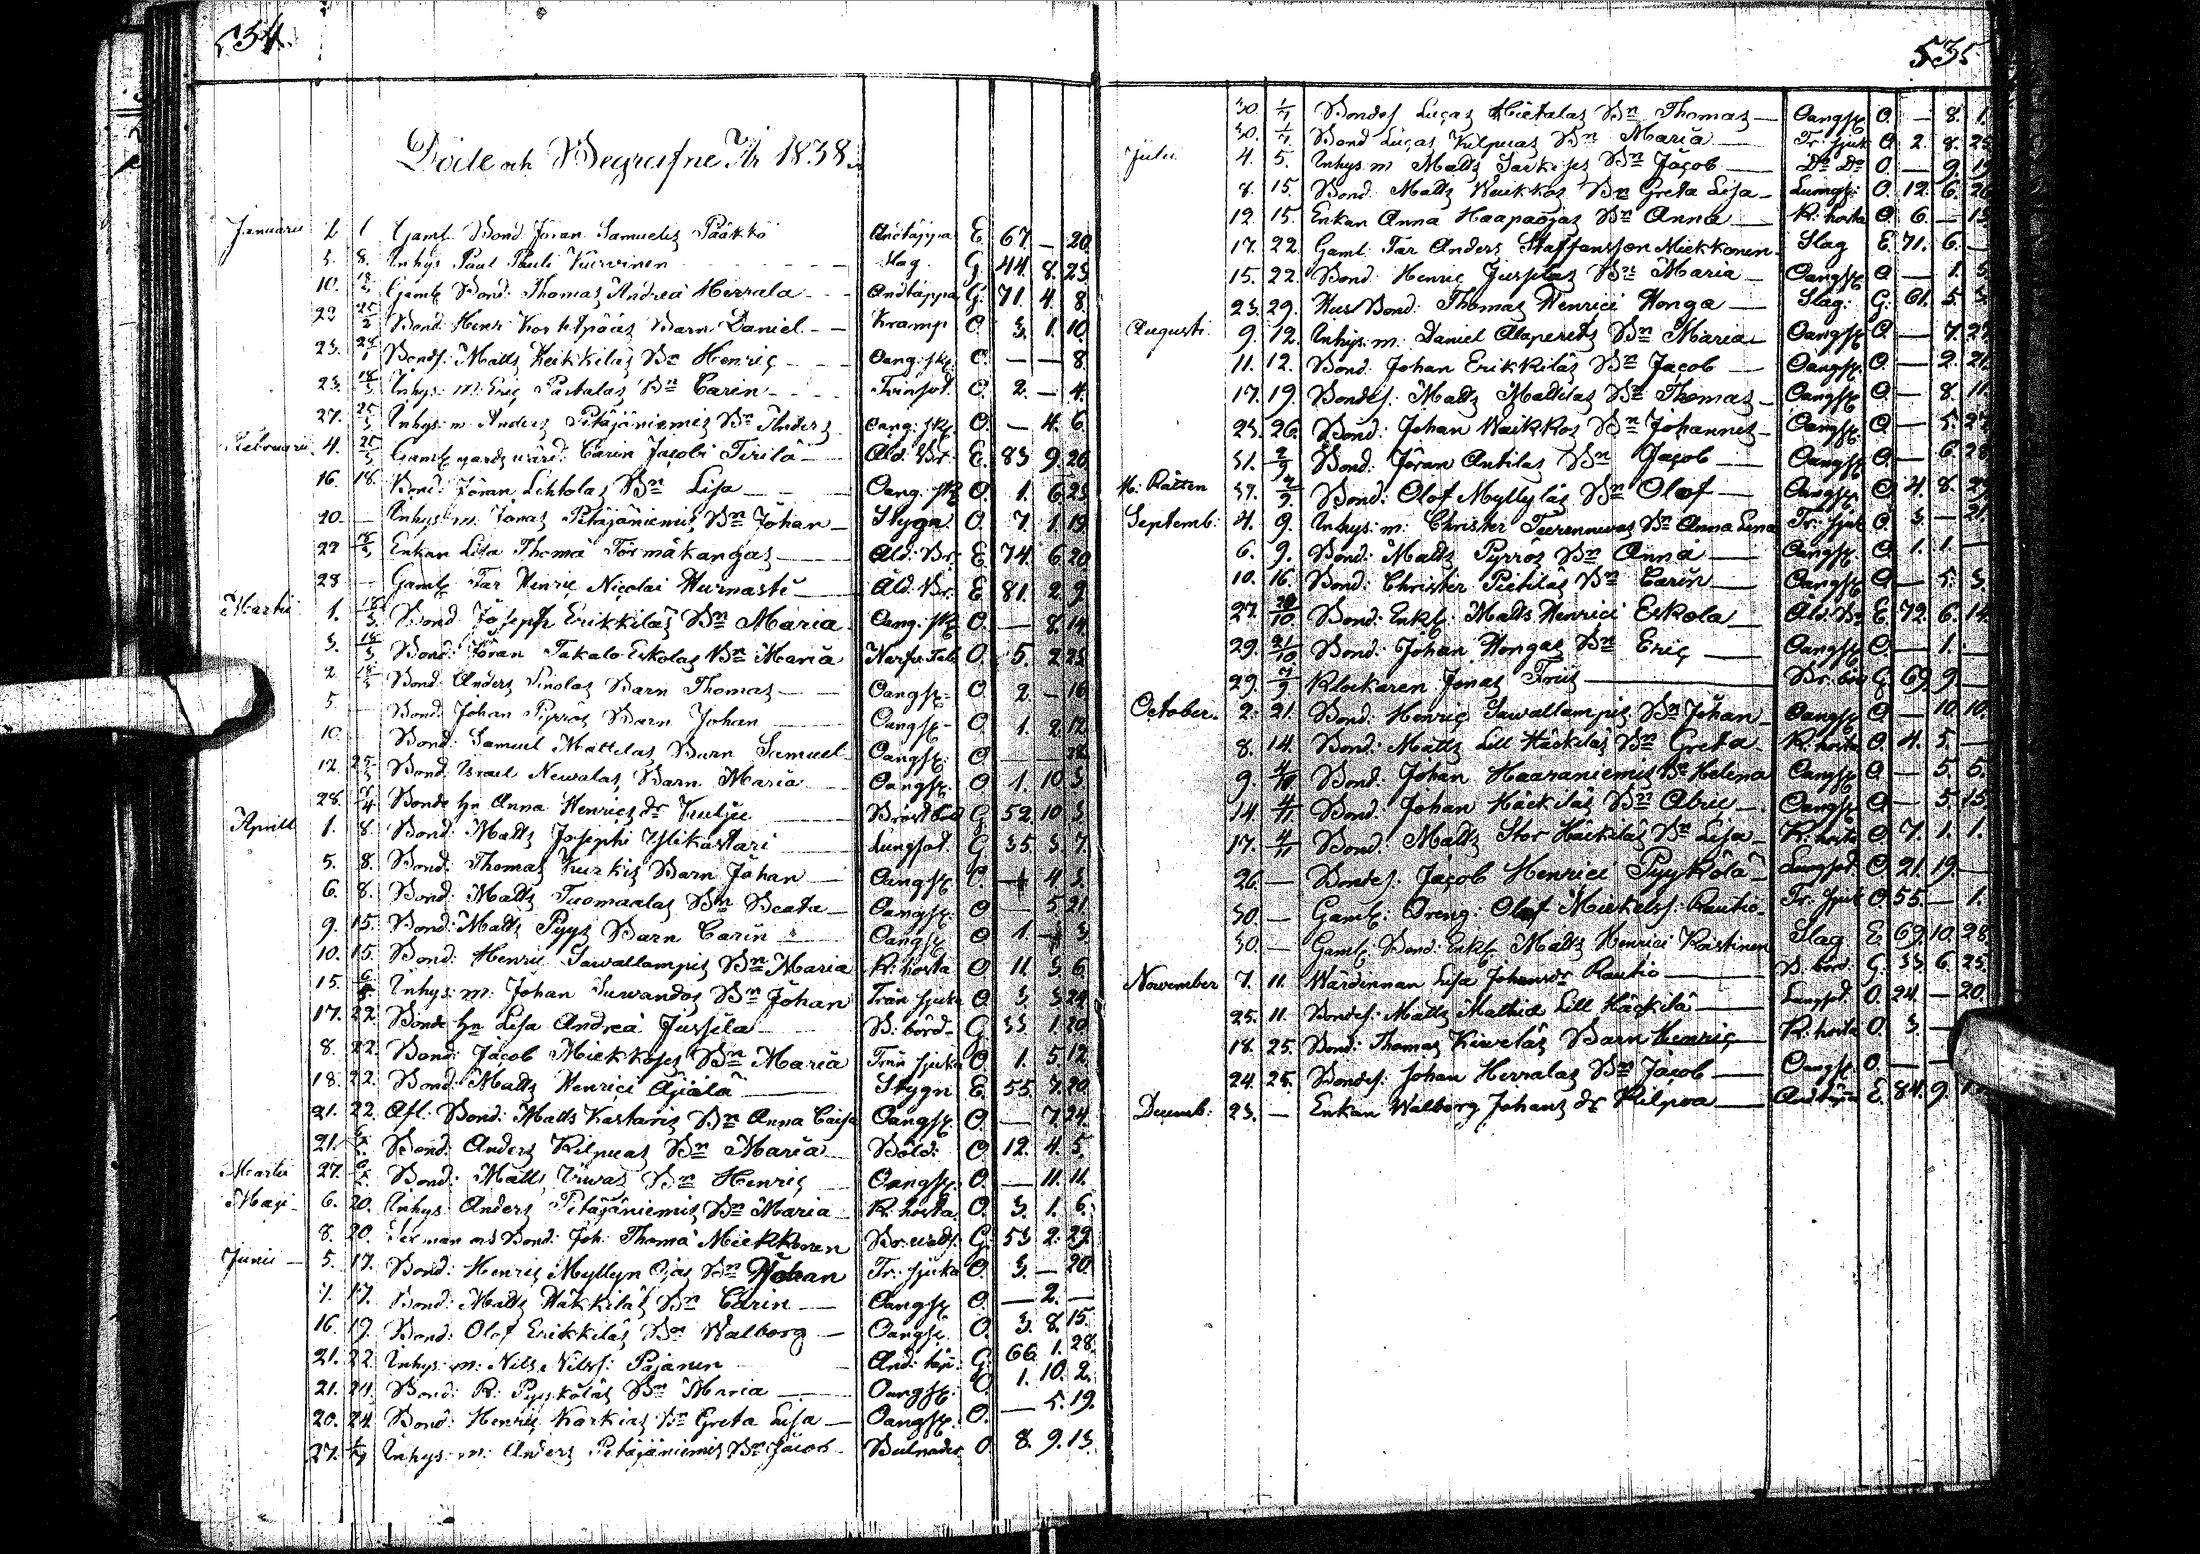 534.
Döde och Begrafne År 1838.
Januarii 2. 1 Gaml. Bond. Jöran Samuelis Pääkkö Andtäppa E. 67 — 20
5. 8. Inhys. Paul Pauli Kurvinen Slag. G. 44. 8. 23
10. 18/3 Gaml. Bond. Thomas Andreæ Herrala Andtäppa G. 71. 4. 8.
23 25/3 Bond. Henr. Barn Daniel Kramp O. 3. 1. 10.
23. Bonds. Matts Keikkilas Bn Henric Oang. skg. O. — — 8
23. 18/3 Inhys. m. Eric Bn Carin O. 2. — 4.
27. 25/3 Inhys. m. Anders Petäjäniemis Bn Anders Oang. skg. O. — 4. 6.
Februarii 4. 25/3 Gaml. gårds wärd. Carin Jacobi Tirilä Åld. Br. E. 83 9. 26
16. 18. Bond. Jöran Lehtolas Bn Lisa Oang. skg. O. 1. 6. 23
20. — Inhys. m. Jonas Petäjäniemis Bn Johan Stygn O. 7. 1. 19
22 18/3 Enkan Lisa Thomæ Törmäkangas Åld. Br. E. 74. 6. 20
28 — Gaml. Far Henric Nicolai Hurnasti Åld. Br. E. 81. 2. 9.
Martii 1. 18/3 Bond. Joseph Erikkiläs Bn Maria Oang. skg. O. — 8. 14
3. 18/3 Bond. Jöran Takalo Eskolas Bn Maria O. 5. 2. 23
2. 18/3 Bond. Anders Sinolas Barn Thomas Oangsg. O. 2. — 16
5. — Bond. Johan Pyrrös Barn Johan Oangsg. O. 1. 2. 12
10. — Bond. Samuel Mattilas Barn Samuel Oangsg. O. — — 28
12. 25/3 Bond. Israel Newalas Barn Maria Oangsg. O. 1. 10. 3.
28. Bonde hn Anna Henrics dr Kulju Bröstbåld G. 52. 10. 3
Aprill 1. 8. Bond. Matts Josephi Ylikastari Lungsot. G. 35 3. 7.
5. 8. Bond. Thomas Kurkis Barn Johan Oangsg. O. — 4 3.
6. 8. Bond. Matts Tuomaalas Bn Beata Oangsg. O. — 5 21
9. 15. Bond. Matts Pyys Barn Carin Oangsg. O 1. — 3.
10. 15. Bond. Henric Sawallampis Bn Maria K. hosta O. 11. 3. 6.
15. Inhys. m. Johan Suwandos Bn Johan Trån sjuka O. 3. 3. 24
17. 22. Bonde hn Lisa Andreæ Jussila B. börd. G. 33 1. 20
8. 22. Bond. Jacob Miekkojas Bn Maria Trån sjuka O. 1. 5. 12
18. 22. Bond. Matts Henrici Äjälä Stygn E. 55. 7. 20
21. 22. Afl. Bond. Matts Kastaris Bn Anna Caisa Oangsg. O. — 7. 24
21. Bond. Anders Kilpuas Bn Maria Böld. O. 12. 4. 5.
Martii 27. Bond. Matts Bn Henric Oangsg. O. — 11. 11.
Maji 6. 20. Inhys. Anders Petäjäniemis Bn Maria K. hosta O. 3. 1. 6.
8. 20. Bond. Joh. Thomæ Miekkonen G. 53 2. 29
Junii 5. 17. Bond. Henric Myllyn Ojas Bn Johan Tr. sjuka O. 3. — 20
7. 17. Bond. Matts Häkkiläs Bn Carin Oangsg. O. — 2. —
16. 19. Bond. Olof Erikkiläs Bn Walborg Oangsg. O. 3. 8. 15.
21. 22. Inhys. m. Nils Nilss. Pajanen And. täp. G. 66. 1. 28.
21. 24. Bond. R. Pyykoläs Bn Maria Oangsg. O. 1. 10. 2.
20. 24. Bond. Henric Karkias Bn Greta Lisa Oangsg. O. — 5. 19.
27. Inhys. m. Anders Petäjäniemis Bn Jacob O. 8. 9. 13.
535
30. 1/7 Bondes. Lucas Hietalas Bn Thomas Oangsg. O. — 8. 1.
30. 1/7 Bond. Lucas Kilpuas Bn Maria Tr. sjuk O. 2. 8. 25
Julii 4. 5. Inhys. m. Matts Bn Jacob Do Do O. — 9. 19
8. 15. Bond. Matts Waikkos Bn Greta Lisa O. 12. 6. 26
12. 15. Enkan Anna Haapaojas Bn Anna K. hosta O. 6. — 13
17. 22. Gaml. Far Anders Staffansson Miekkonen Slag E. 71. 6. —
15. 22. Bond. Henric Jusplas Bn Maria Oangsg. O — 1. 5.
23. 29. Hus Bond. Thomas Henrici Honga Slag. G. 61. 5. 3.
Augusti 9. 12. Inhys. m. Daniel Alaperets Bn Maria Oangsg. O. — 7. 27
11. 12. Bond. Johan Erikkiläs Bn Jacob Oangsg. O. — 2. 21.
17. 19. Bondes. Matts Mattilas Bn Thomas Oangsg. O. — 8. 11.
23. 26. Bond. Johan Waikkos Bn Johannes Oangsg. O. — 5. 27
31. 2/9 Bond. Jöran Antilas Bn Jacob Oangsg. O. — 6. 28
31. 2/9 Bond. Olof Myllyläs Bn Olof Oangsg. O. 4. 8. 29
Septemb. 4. 9. Inhys. m. Christer Bn Anna Lena Tr. sjuk O. 3. — 21.
6. 9. Bond. Matts Pyrrös Bn Anna Oangsg. O. 1. 1. —
10. 16. Bond. Christer Pietiläs Bn Carin Oangsg. O — 5. 3.
27. Bond. Enkl. Matts Henrici Eskola Åld. Br. E. 72. 6. 14
29. 21/10 Bond. Johan Hongas Bn Eric Oangsg. O — 1. —
29. Klockaren Jonas Friis G 69. 9. —
October. 2. 21. Bond. Henric Sawallampis Bn Johan Oangsg. O — 10. 10.
8. 14. Bond. Matts Lill Häckiläs Bn Greta K. hosta O. 4. 5. —
9. 4/11 Bond. Johan Haaraniemis Bn Helena Oangsg. O — 5. 6.
14. 4/11 Bond. Johan Häckiläs Bn Abric Oangsg. O — 5. 15.
17. 4/11 Bond. Matts Stor Häckiläs Bn Lisa K. hosta O. 7. 1. 1.
26. — Bondes. Jacob Henrici Pyykölä Lungsot. O 21. 19. —
30. — Gaml. Dreng. Olof Mickelss. Rautio Tr. sjuk O. 55. — 1.
30. — Gaml. Bond. Enkl. Matts Henrici Kastinen Slag E. 69. 10. 28
November 7. 11. Wärdinnan Lisa Johansdr Rautio B. börd. G. 33. 6. 25.
25. 11. Bondes. Matts Matthiæ Lill Häckilä Lungsot. O. 24. — 20.
18. 25. Bond. Thomas Kiweläs Barn Henric K. hosta O. 3. —
24. 25. Bondes. Johan Herralas Bn Jacob Oangsg. O. — —
Decemb. 23. — Enkan Walborg Johans dr Kilpua Andtäpa E. 84. 9.